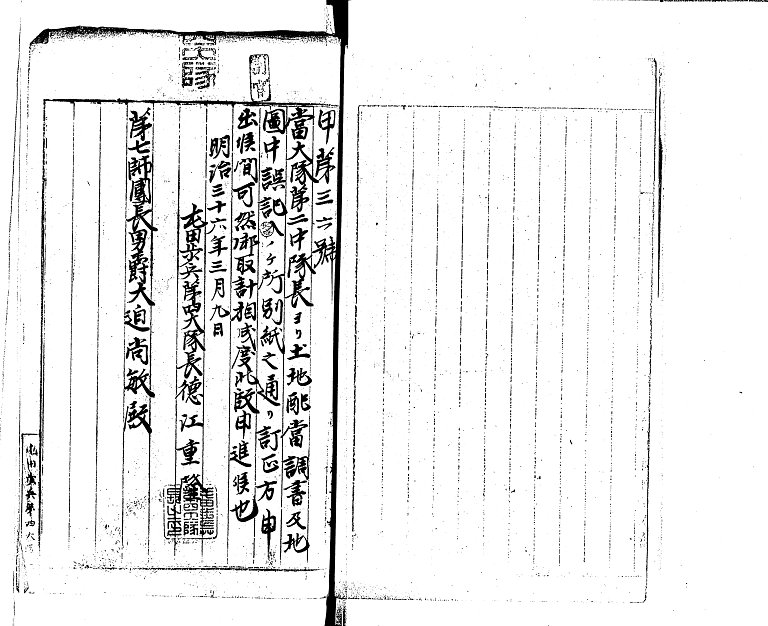 甲第三六號
當大隊第二中隊長ヨリ土地配當調書及地
圖中誤記ノケ所別紙之通リ訂正方申
出候間可然御取計相成度此段申進候也
明治三十六年三月九日
屯田歩兵第四大隊長德江重隆
第七師團長男爵大迫尚敏殿
屯田歩兵第四大